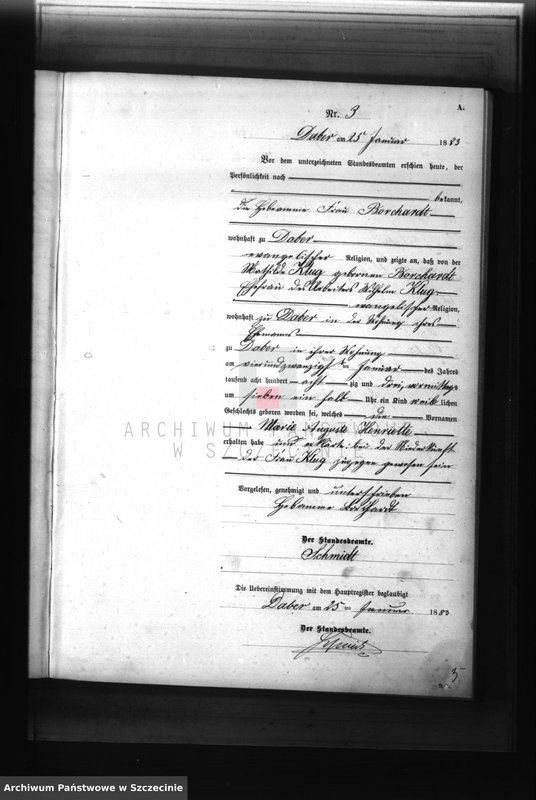 A.
Nr. 3
Daber am 25 Januar 1883
Vor dem unterzeichneten Standesbeamten erschien heute, der
Persönlichkeit nach
bekannt,
die Hebeamme Frau Borchardt
wohnhaft zu Daber
evangelischer Religion, und zeigte an, daß von der
Mathilde Klug geborenen Borchardt
Ehefrau des Arbeiters Wilhelm Klug
evangelischer Religion,
wohnhaft zu Daber in der Wohnung ihres
Ehemanns
zu Daber in ihrer Wohnung
am vierundzwanzigsten Januar des Jahres
tausend acht hundert acht zig und drei, vormittags
um sieben ein halb Uhr ein Kind weib lichen
Geschlechts geboren worden sei, welches die Vornamen
Marie Auguste Henriette
erhalten habe und bei der Niederkunft
der Frau Klug zugegen gewesen sein
Vorgelesen, genehmigt und unterschrieben
Hebamme Borchardt
Der Standesbeamte.
Schmidt
Die Uebereinstimmung mit dem Hauptregister beglaubigt
Daber am 25 ten Januar 1883
Der Standesbeamte.
Schmidt
5
ARCHIWUM PAŃSTWOWE
W SZCZECINIE
Archiwum Państwowe w Szczecinie